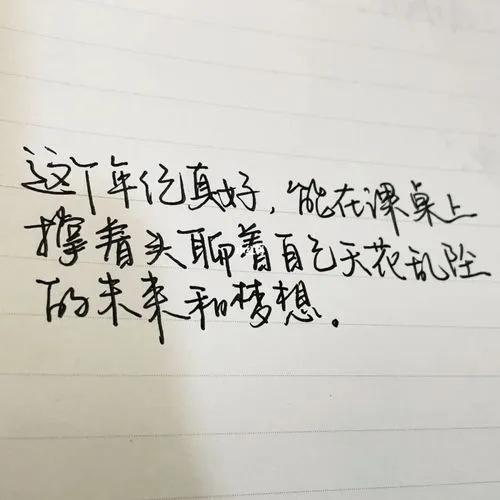 这个年纪真好，能在课桌上
撑着头聊着自己天花乱坠
的未来和梦想．